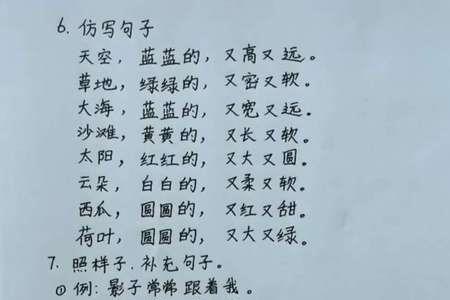 6. 仿写句子
天空，蓝蓝的，又高又远。
草地，绿绿的，又密又软。
大海，蓝蓝的，又宽又远。
沙滩，黄黄的，又长又软。
太阳，红红的，又大又圆。
云朵，白白的，又柔又软。
西瓜，圆圆的，又红又甜。
荷叶，圆圆的，又大又绿。
7. 照样子、补充句子。
① 例: 影子常常跟着我。